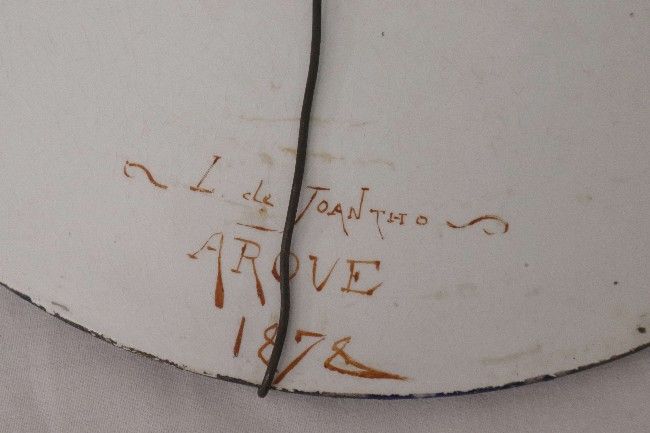 ~ L. de JOANTHO ~
AROVE
1878